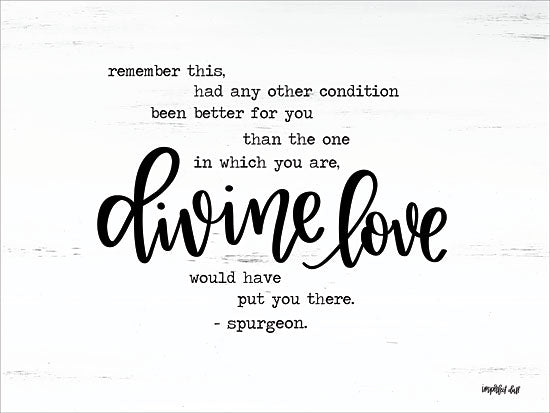 remember this,
had any other condition
been better for you
than the one
in which you are,
divine love
would have
put you there.
- spurgeon.
imperfect dust